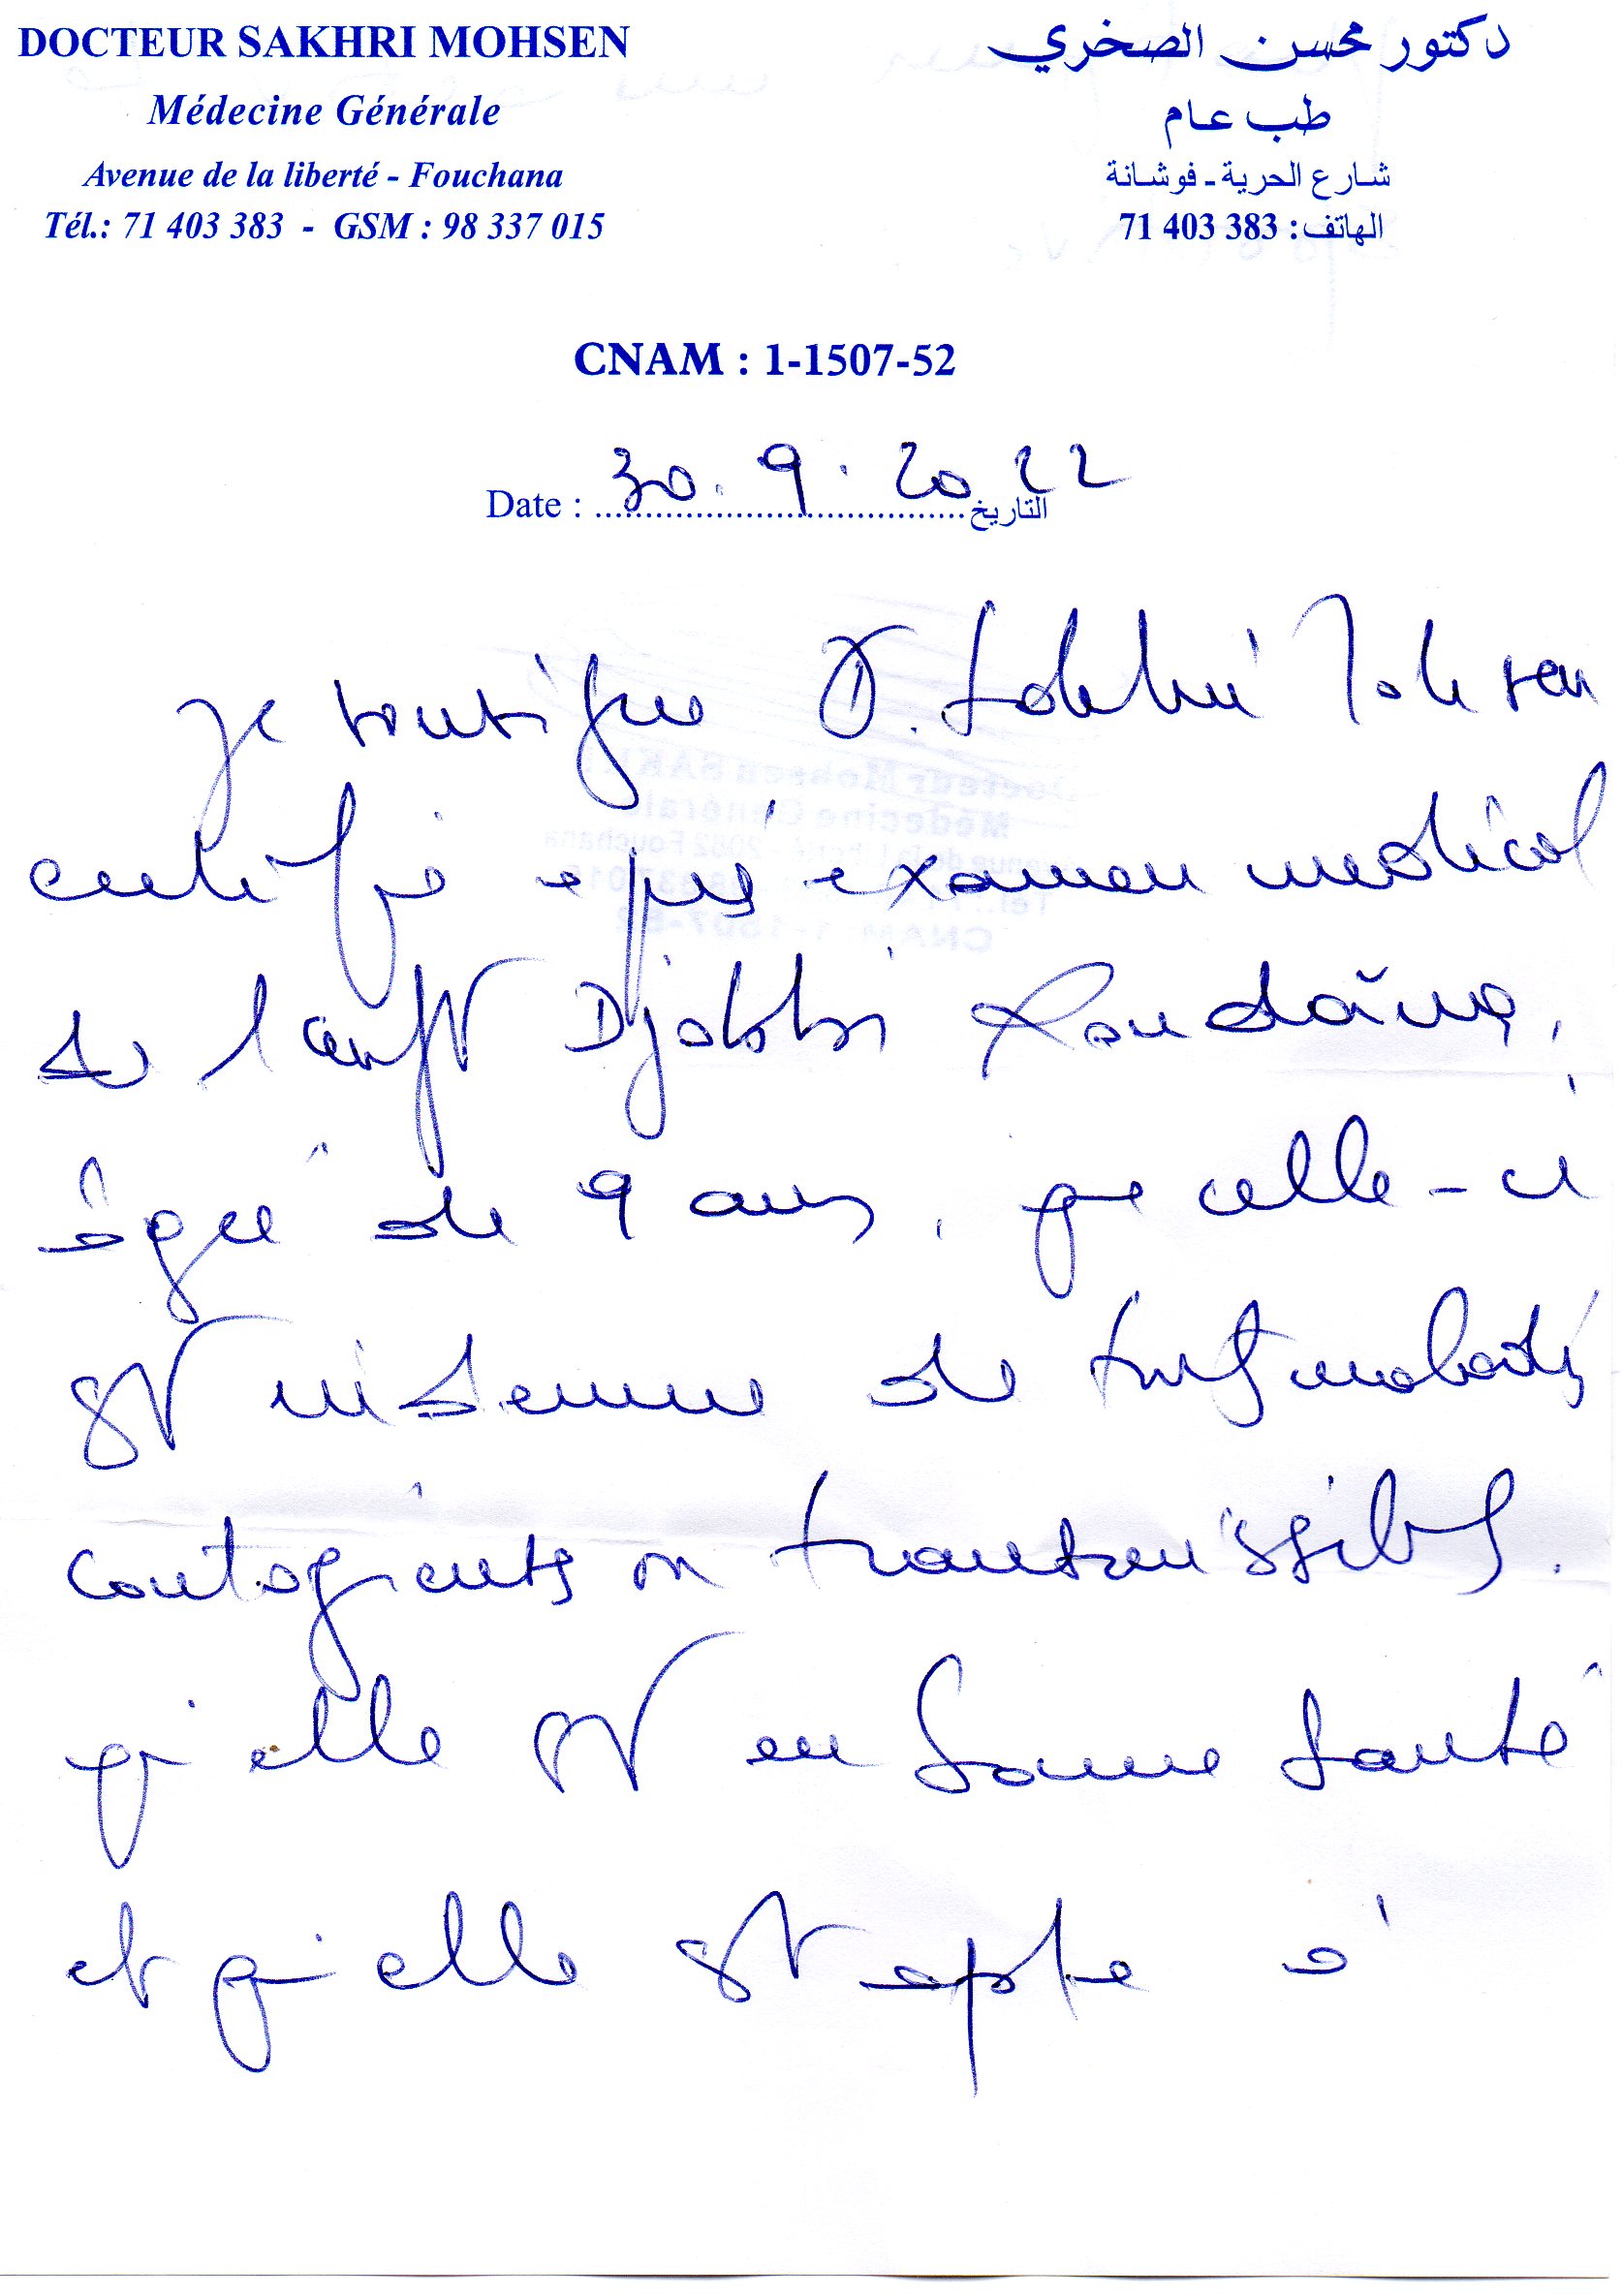 DOCTEUR SAKHRI MOHSEN
Médecine Générale
Avenue de la liberté - Fouchana
Tél.: 71 403 383 - GSM : 98 337 015
دكتور محسن الصخري
طب عام
شارع الحرية - فوشانة
الهاتف: 71 403 383
CNAM : 1-1507-52
Date : 30.9.2022 التاريخ
Je soussigné Dr. Sakhri Mohsen
certifie après examen médical
de l'enft Djebbi
âgée de 9 ans, que celle-ci
est indemne de toutes maladies
contagieuses ou transmissibles.
qu'elle est en bonne santé
et qu'elle est apte à